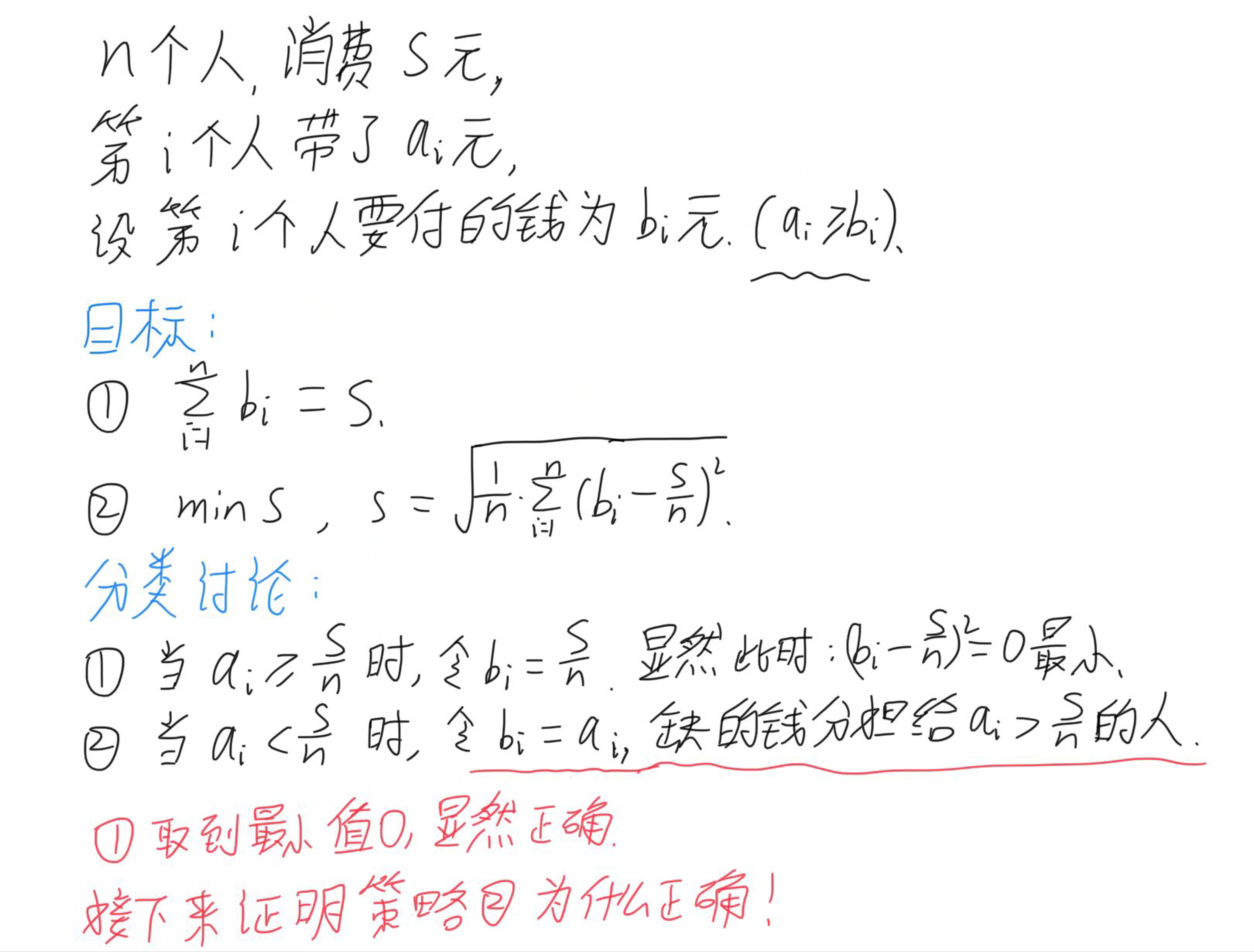 n个人, 消费 S 元,
第 i 个人 带了 aᵢ元,
设 第 i 个人要付的钱为 bᵢ元. (aᵢ≥bᵢ).
目标:
① ∑ᵢ₌₁ⁿ bᵢ = S.
② min s , s = √(1/n · ∑ᵢ₌₁ⁿ (bᵢ - S/n)²).
分类讨论:
① 当 aᵢ ≥ S/n 时, 令 bᵢ = S/n. 显然此时: (bᵢ - S/n)² = 0 最小.
② 当 aᵢ < S/n 时, 令 bᵢ = aᵢ, 缺的钱分担给 aᵢ > S/n 的人.
① 取到最小值0, 显然正确.
接下来证明策略②为什么正确!